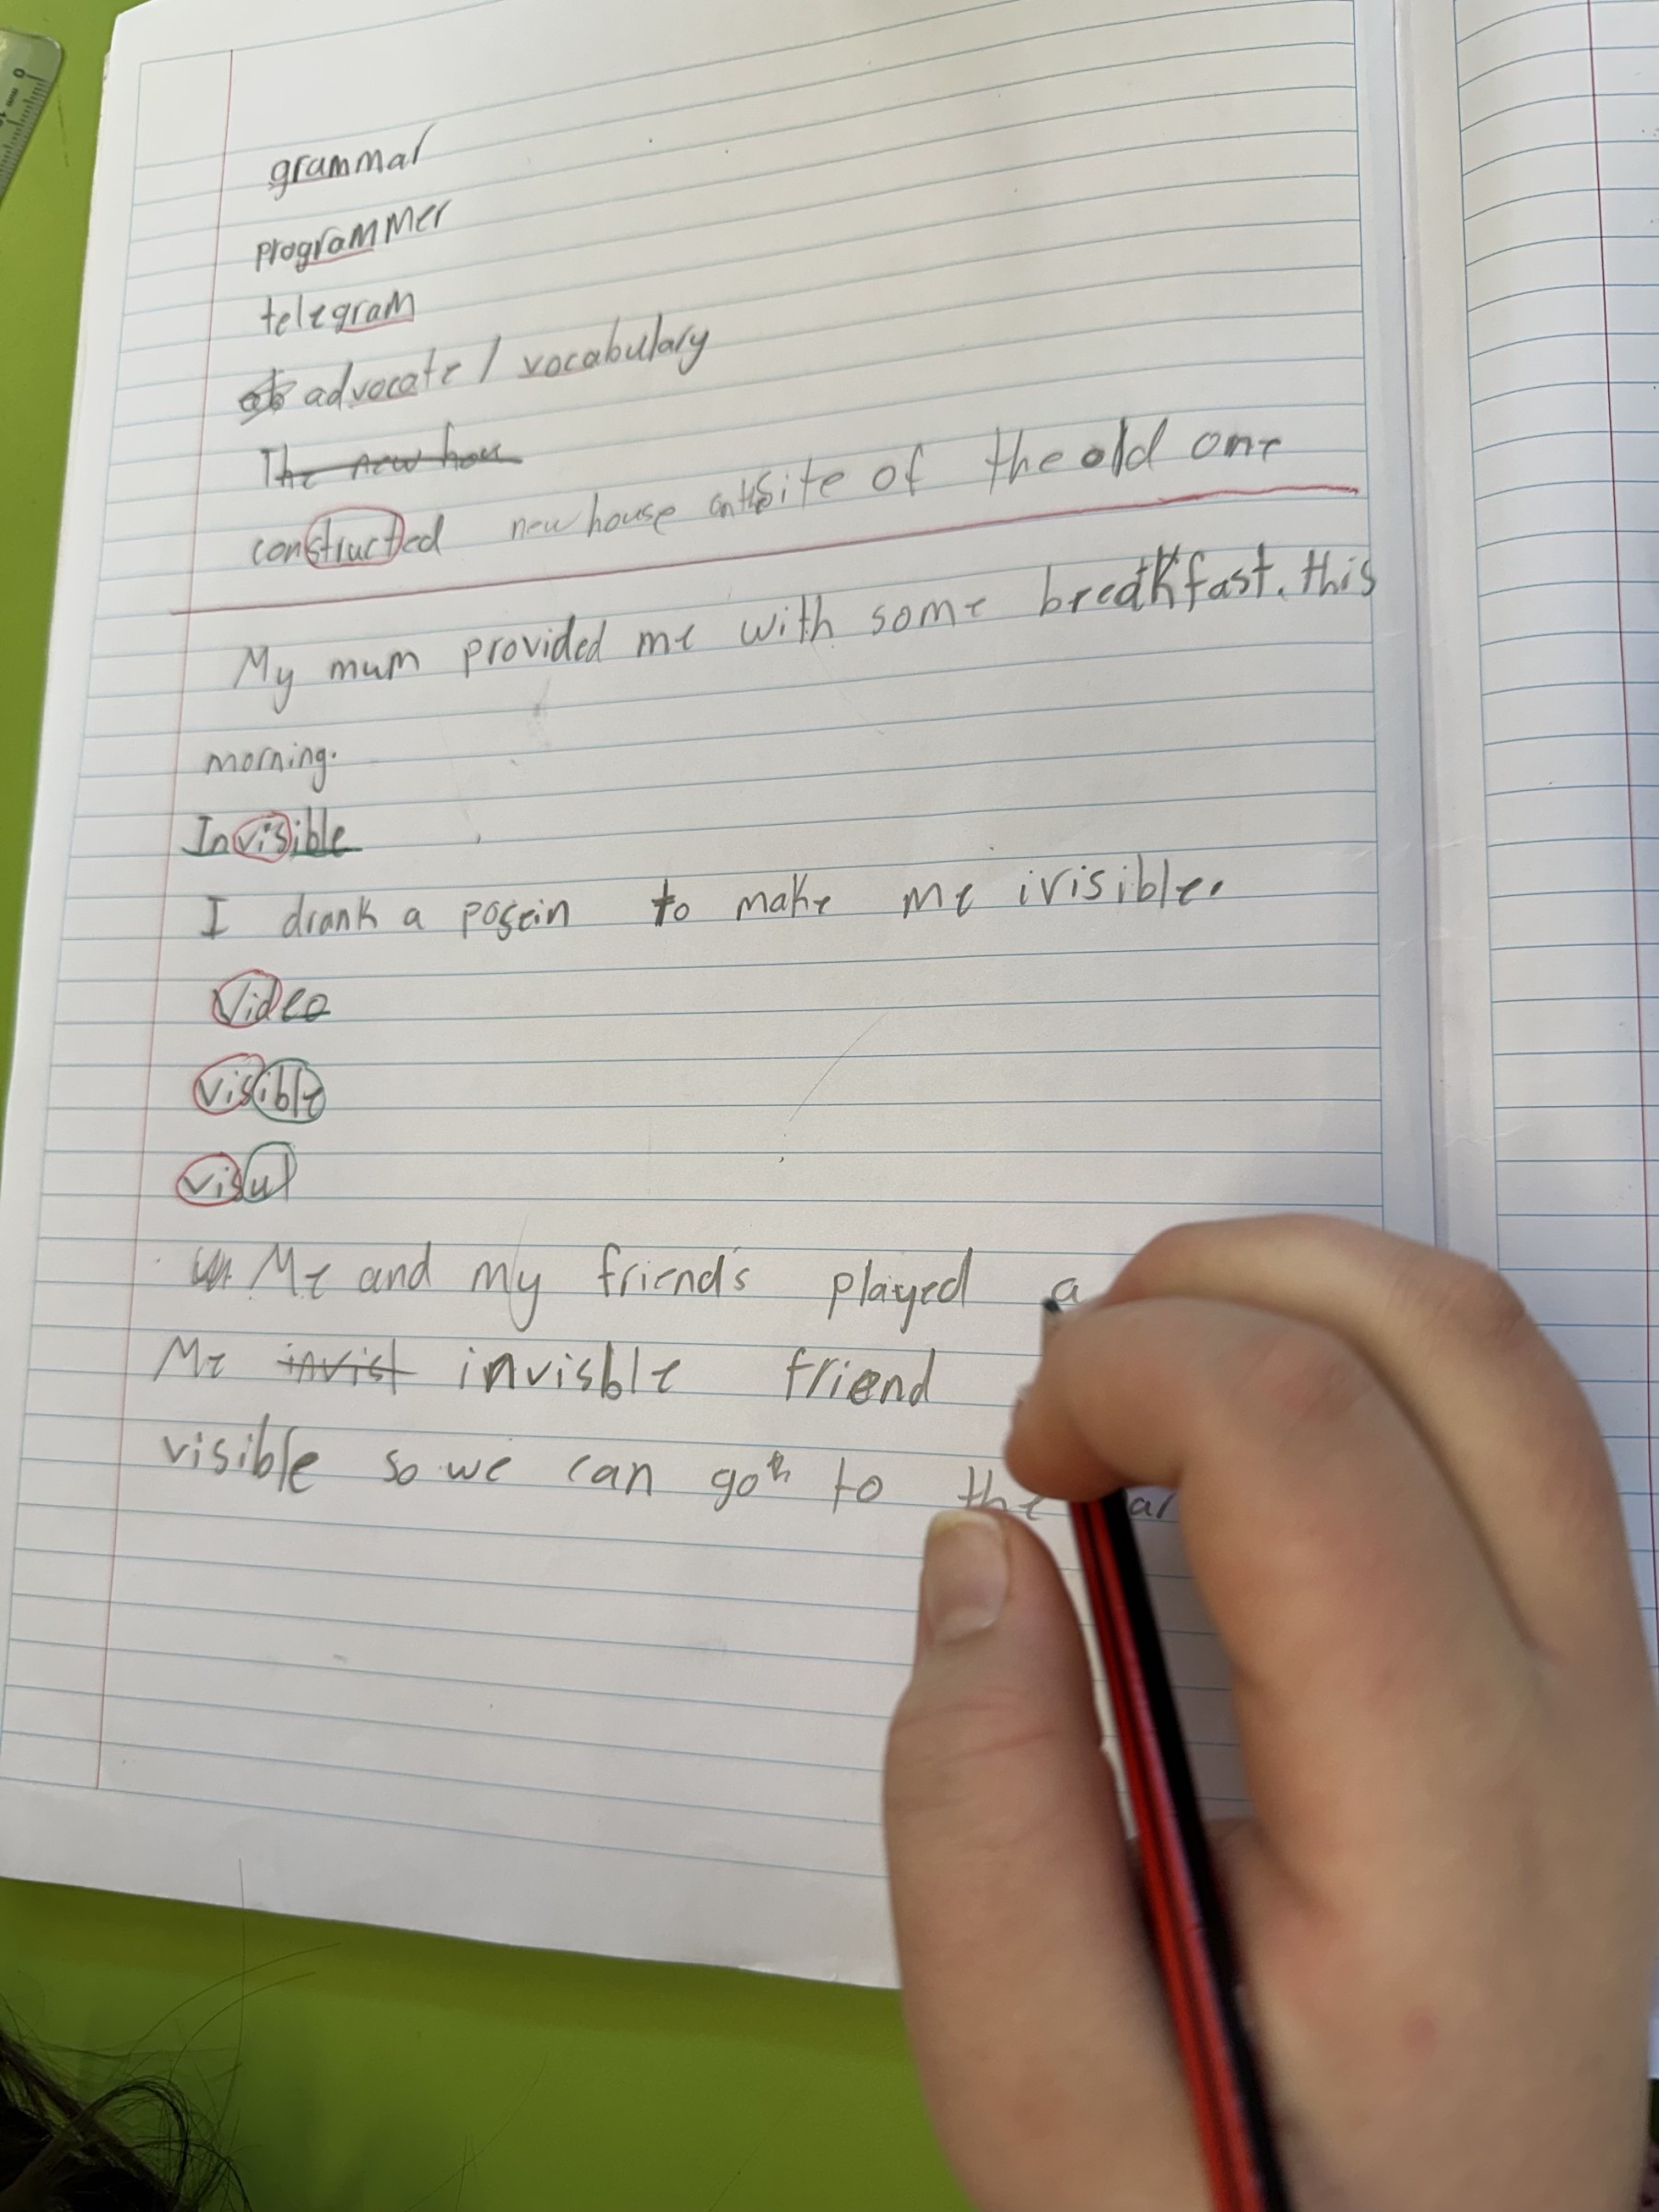 grammar
programmer
telegram
advocate / vocabulary
The new hou
constructed new house onthe site of the old one
My mum provided me with some breakfast. this
morning.
Invisible
I drank a posein to make me ivisible.
Video
visible
visul
Me and my friend's played a
Me invist invisble friend
visible so we can go to the